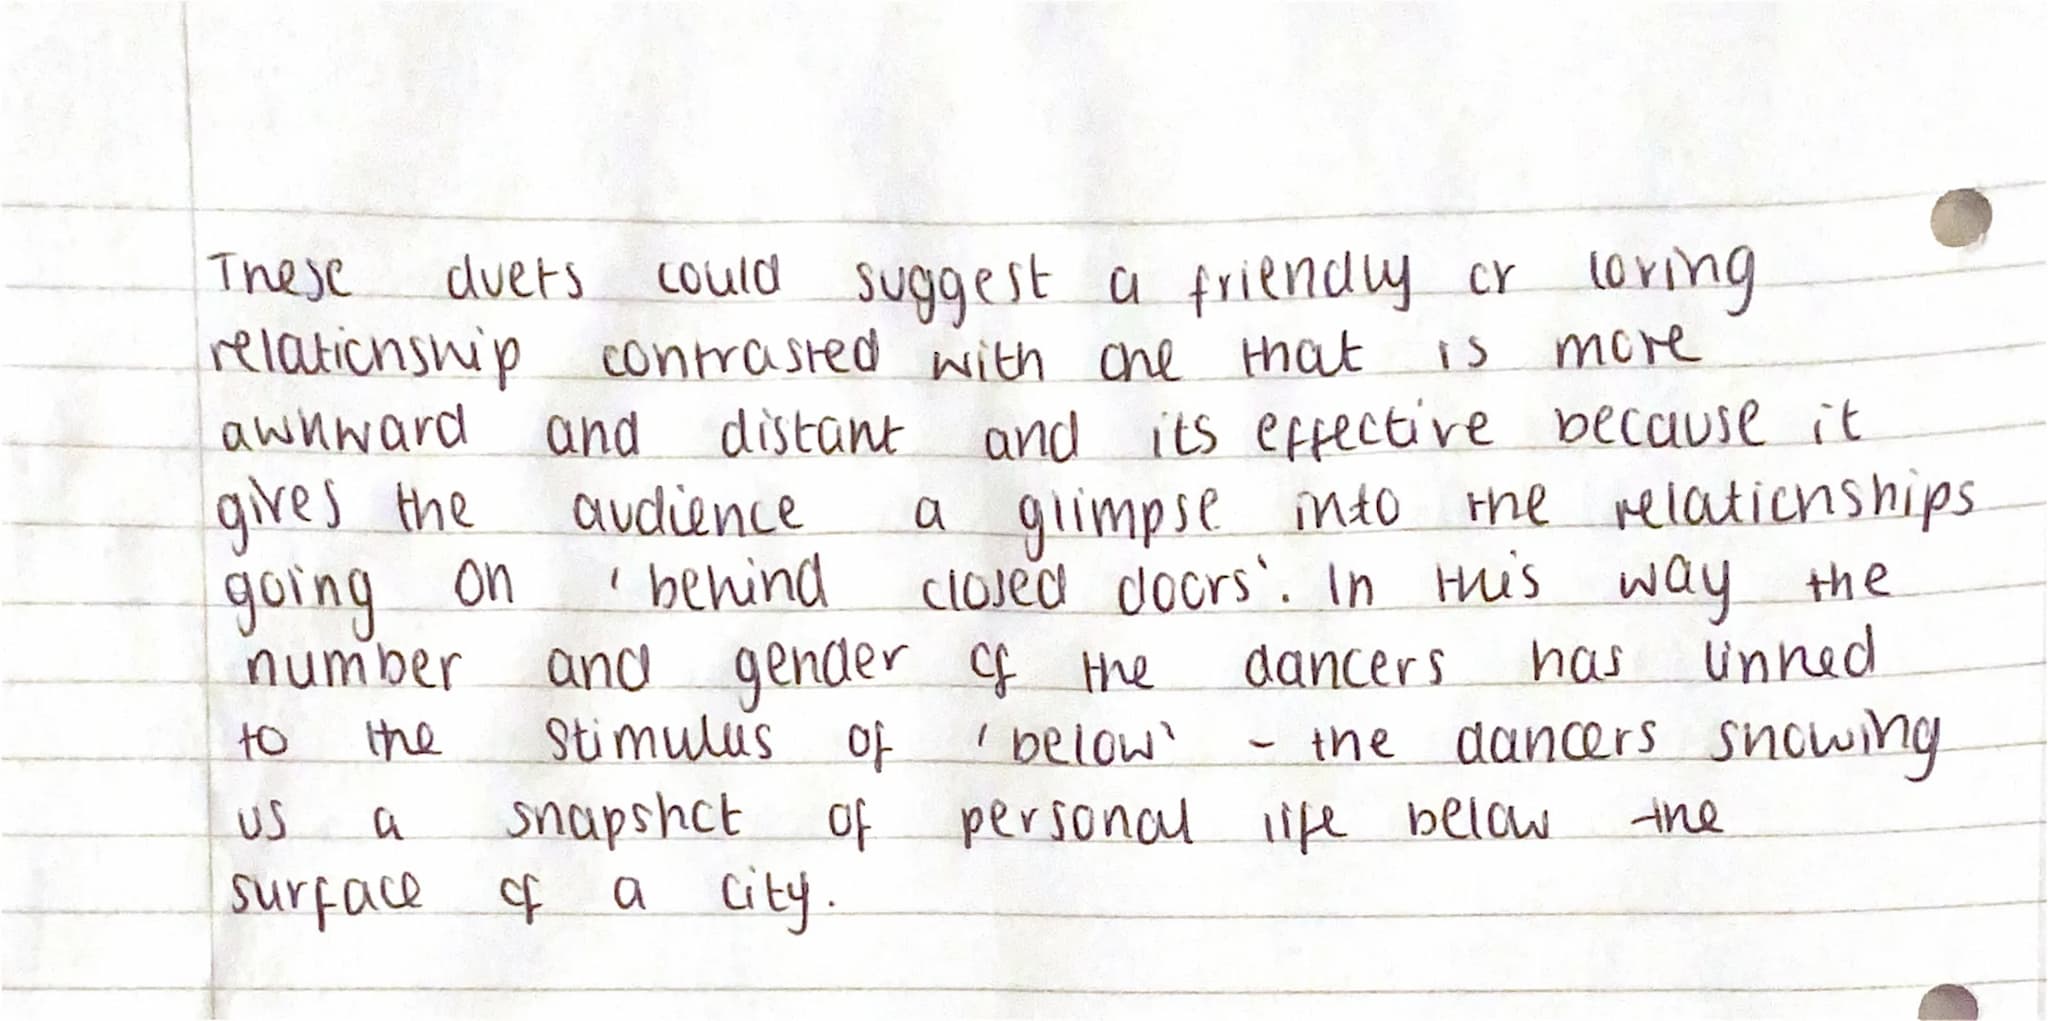 These duets could suggest a friendly or loving
relationship contrasted with one that is more
awkward and distant and its effective because it
gives the audience a glimpse into the relationships
going on 'behind closed doors'. In this way the
number and gender of the dancers has linked
to the stimulus of 'below' - the dancers showing
us a snapshot of personal life below the
surface of a city.